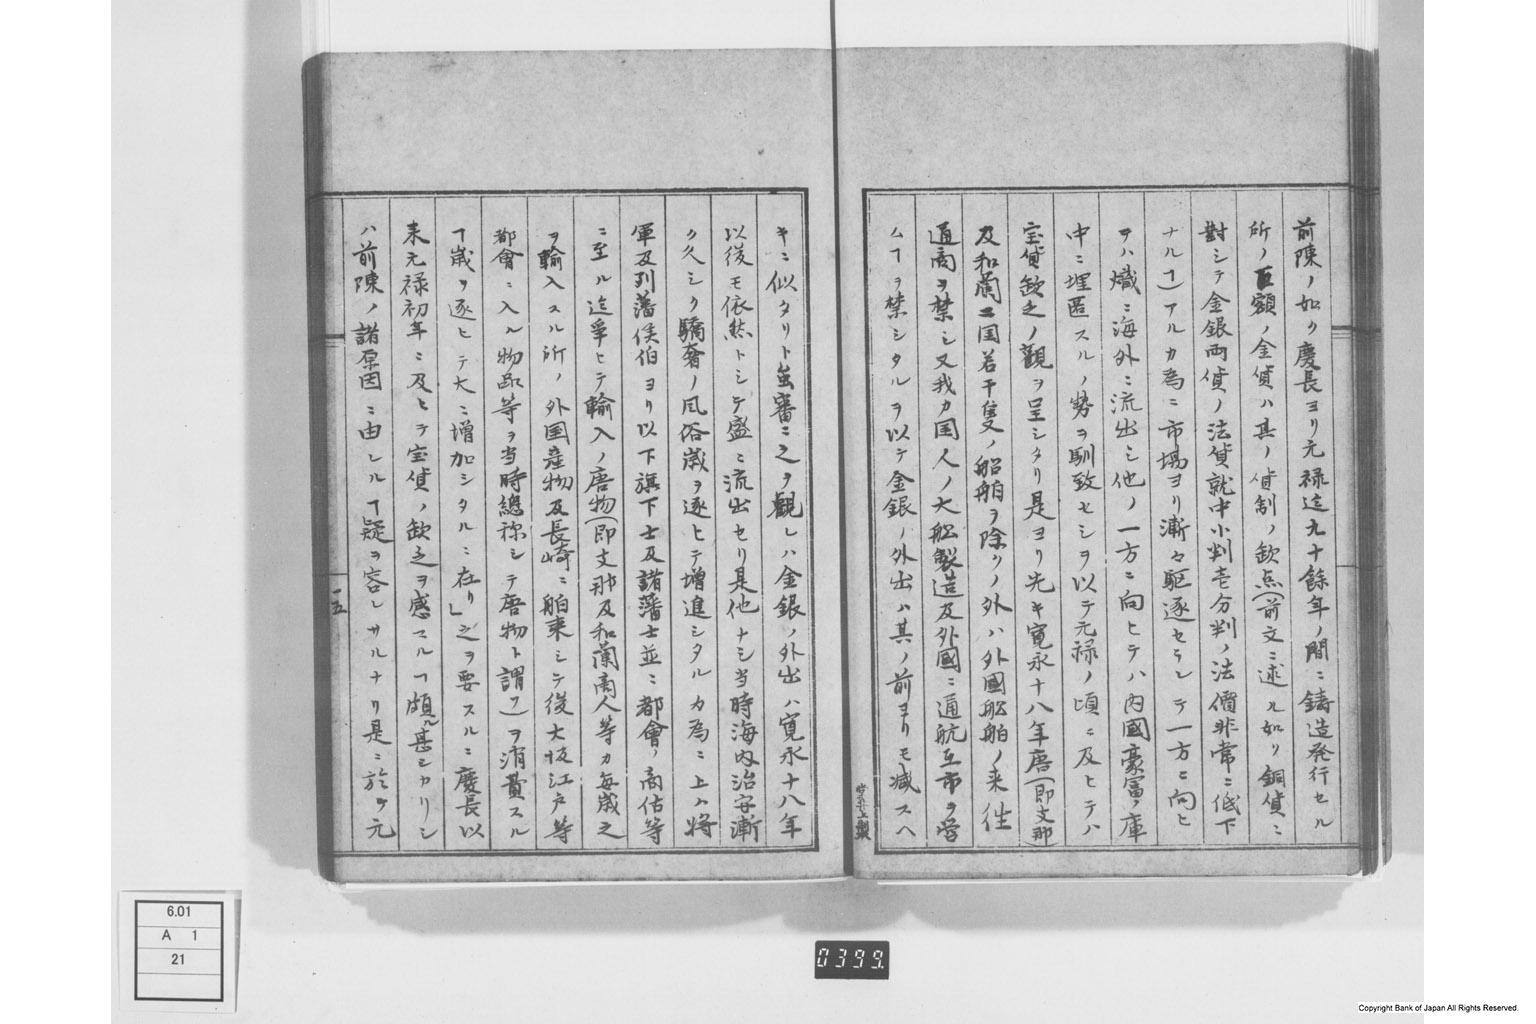 前陳ノ如ク慶長ヨリ元禄迄九十餘年ノ間ニ鋳造発行セル
所ノ巨額ノ金貨ハ其ノ貨制ノ欠点(前文ニ述ル如ク銅貨ニ
對シテ金銀両貨ノ法貨就中小判壱分判ノ法價非常ニ低下
ナルヿ)アルカ為ニ市場ヨリ漸々駆逐セラレテ一方ニ向ヒ
テハ熾ニ海外ニ流出シ他ノ一方ニ向ヒテハ内國豪冨ノ庫
中ニ埋匿スルノ勢ヲ馴致セシヲ以テ元禄ノ頃ニ及ヒテハ
宝貨欠乏ノ觀ヲ呈シタリ是ヨリ先キ寛永十八年唐(即支那)
及和蘭二国若干隻ノ船舶ヲ除クノ外ハ外國船舶ノ来往
通商ヲ禁シ又我カ国人ノ大船製造及外國ニ通航互市ヲ営
ムヿヲ禁シタルヲ以テ金銀ノ外出ハ其ノ前ヨリモ減スヘ
キニ似タリト𧈧審ニ之ヲ觀レハ金銀ノ外出ハ寛永十八年
以後モ依然トシテ盛ニ流出セリ是他ナシ当時海内治安漸
ク久シク驕奢ノ風俗歳ヲ逐ヒテ増進シタルカ為ニ上ハ将
軍及列藩侯伯ヨリ以下旗下士及諸藩士並ニ都會ノ商估等
ニ至ル迄爭ヒテ輸入ノ唐物(即支那及和蘭商人等カ毎歳之
ヲ輸入スル所ノ外国産物及長崎ニ舶来シテ後大坂江戸等
都會ニ入ル物品等ヲ当時總称シテ唐物ト謂フ)ヲ消費スル
ヿ歳ヲ逐ヒテ大ニ増加シタルニ在リ」之ヲ要スルニ慶長以
来元禄初年ニ及ヒテ宝貨ノ欠乏ヲ感スルヿ頗ル甚シカリシ
ハ前陳ノ諸原因ニ由レルヿ疑ヲ容レサルナリ是ニ於テ元
一五
6.01
A 1
21
0399.
Copyright Bank of Japan All Rights Reserved.